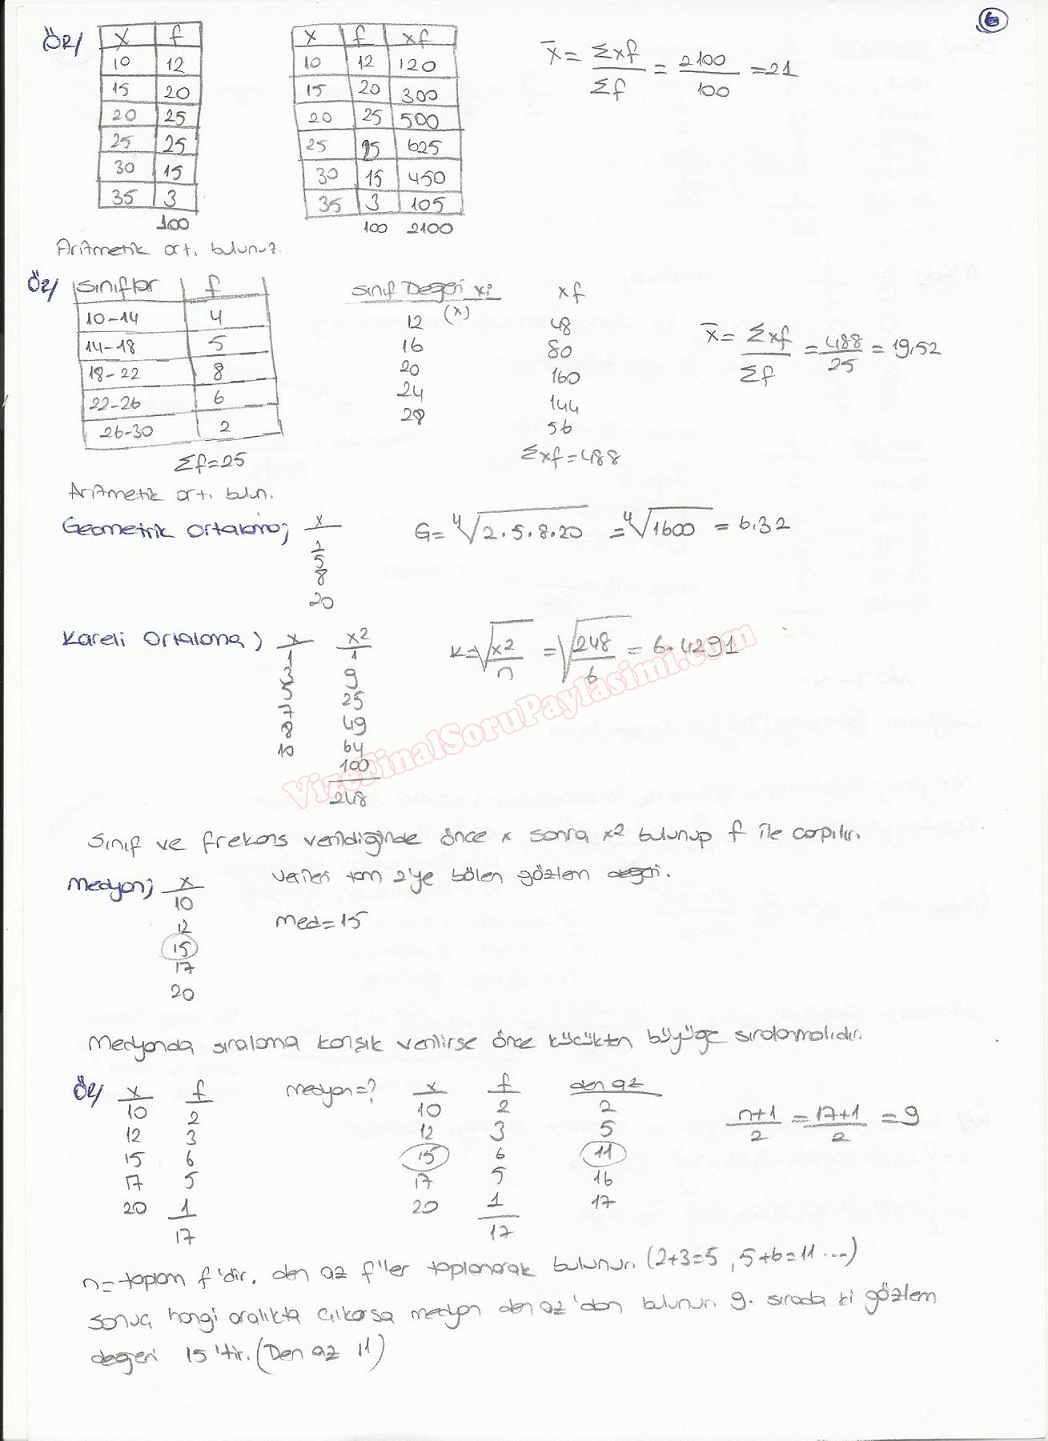 6
Ör/
x f
10 12
15 20
20 25
25 25
30 15
35 3
100
x f xf
10 12 120
15 20 300
20 25 500
25 25 625
30 15 450
35 3 105
100 2100
x̄ = Σxf / Σf = 2100 / 100 = 21
Aritmetik ort. bulunuz.
Ör/
sınıflar f
10-14 4
14-18 5
18-22 8
22-26 6
26-30 2
Σf=25
Sınıf Değeri x?
(x)
12
16
20
24
28
xf
48
80
160
144
56
Σxf=488
x̄ = Σxf / Σf = 488 / 25 = 19,52
Aritmetik ort. bulun.
Geometrik Ortalama;
x
2
5
8
20
G= ⁴√2.5.8.20 = ⁴√1600 = 6.32
Kareli Ortalama;
x x²
1 1
3 9
5 25
7 49
8 64
10 100
248
K=√x²/n = √248/6 = 6.4291
VizeFinalSoruPaylasimi.com
Sınıf ve frekans verildiğinde önce x sonra x² bulunup f ile çarpılır.
Medyan;
x
10
12
15
17
20
Verileri tam 2'ye bölen gözlem değeri.
Med=15
Medyanda sıralama karışık verilirse önce küçükten büyüğe sıralanmalıdır.
Ör/
x f
10 2
12 3
15 6
17 5
20 1
17
medyan=?
x f den az
10 2 2
12 3 5
15 6 11
17 5 16
20 1 17
17
n+1 / 2 = 17+1 / 2 = 9
n=toplam f'dir. den az f'ler toplanarak bulunur. (2+3=5, 5+6=11 ...)
sonuç hangi aralıkta çıkarsa medyan den az'dan bulunur. 9. sırada ki gözlem
değeri 15'tir. (Den az 11)